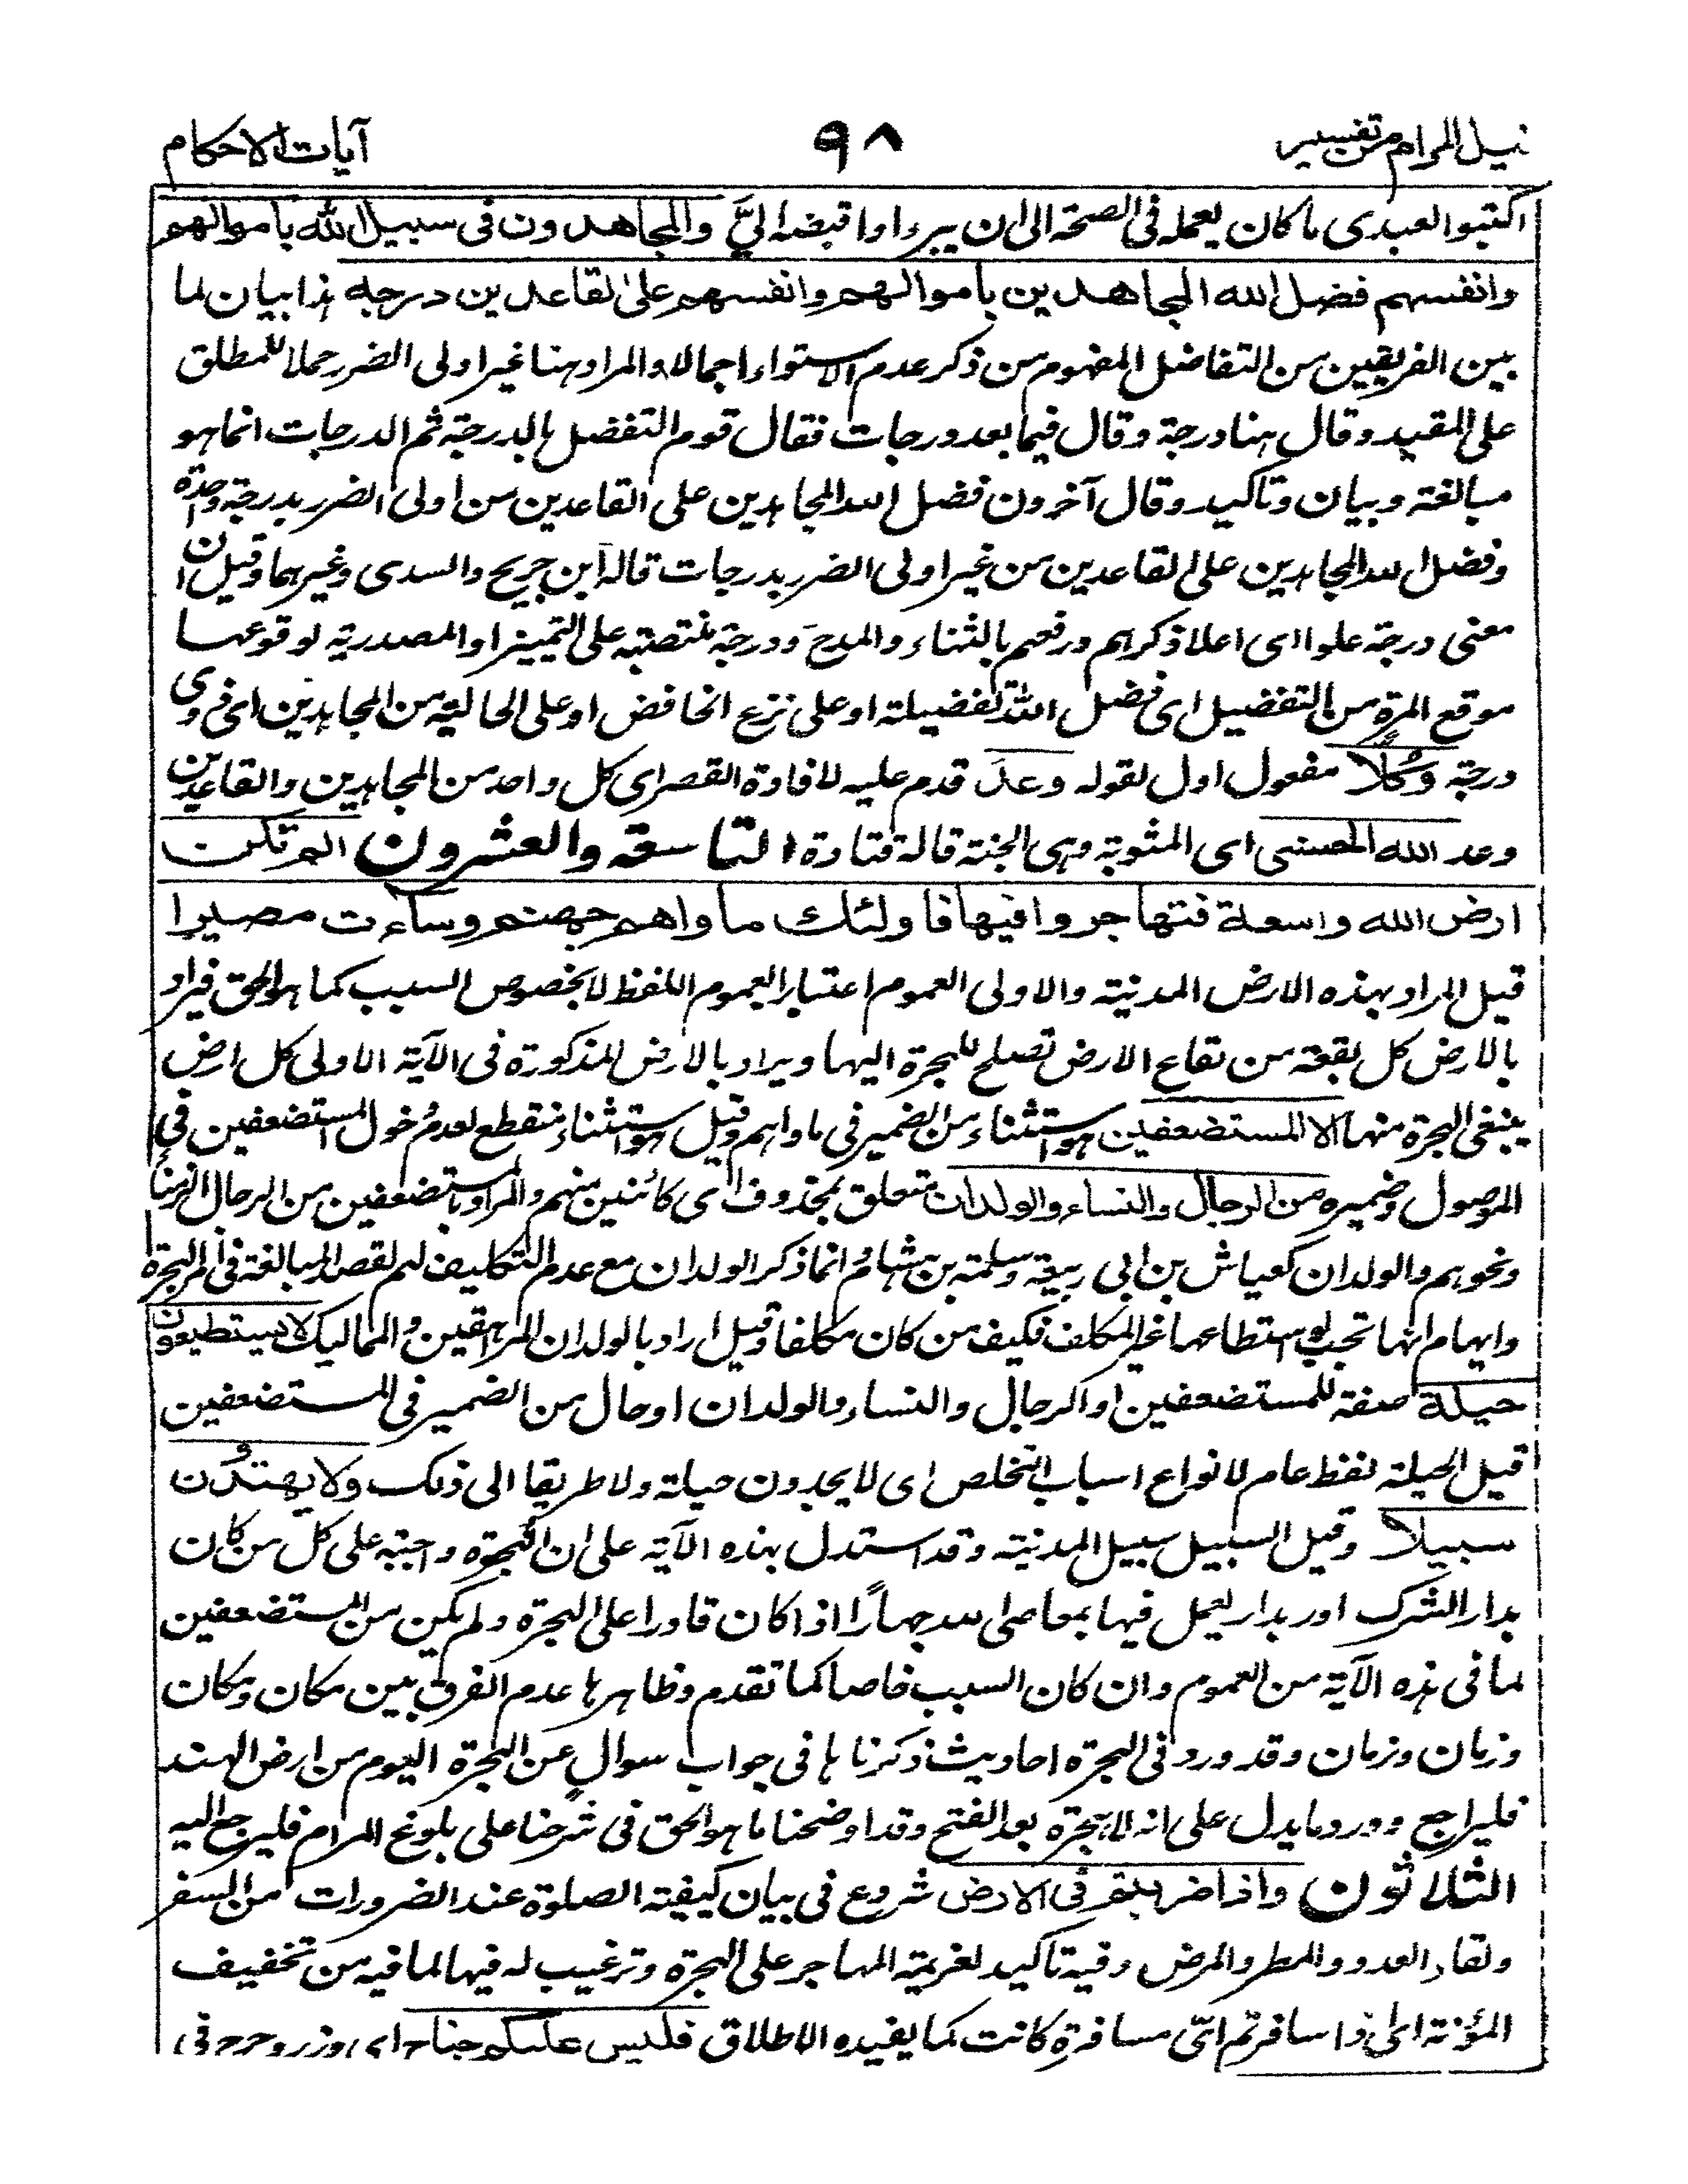 نيل المرام من تفسير ٩٨ آيات الاحكام
اكتبوا لعبدى ما كان يعمله فى الصحة الى ان يبرء او اقبضه الىَّ والمجاهدون فى سبيل الله باموالهم
وانفسهم فضل الله المجاهدين باموالهم وانفسهم على القاعدين درجة هذا بيان لما
بين الفريقين من التفاضل المفهوم من ذكر عدم الاستواء اجمالا والمراد هنا غير اولى الضرر حملا للمطلق
على المقيد وقال هنا درجة وقال فيما بعد درجات فقال قوم التفضل بالدرجة ثم الدرجات انما هو
مبالغة وبيان وتاكيد وقال آخرون فضل الله المجاهدين على القاعدين من اولى الضرر بدرجة واحدة
وفضل الله المجاهدين على القاعدين من غير اولى الضرر بدرجات قاله ابن جريج والسدى وغيرهما وقيل ان
معنى درجة علوا اى اعلا ذكرهم ورفعهم بالثناء والمدح ودرجة منتصبة على التمييز او المصدرية لوقوعها
موقع المرة من التفضيل اى فضل الله تفضيلة او على نزع الخافض او على الحالية من المجاهدين اى ذوى
درجة وكلا مفعول اول لقوله وعد قدم عليه لافادة القصر اى كل واحد من المجاهدين والقاعدين
وعد الله الحسنى اى المثوبة وهى الجنة قاله قتادة التاسعة والعشرون الم تكن
ارض الله واسعة فتهاجروا فيها فاولئك ماواهم جهنم وساءت مصيرا
قيل المراد بهذه الارض المدينة والاولى العموم اعتبار العموم اللفظ لا بخصوص السبب كما هو الحق فيراد
بالارض كل بقعة من بقاع الارض تصلح للهجرة اليها ويراد بالارض المذكورة فى الآية الاولى كل ارض
ينبغى الهجرة منها الا المستضعفين هو استثناء من الضمير فى ماواهم وقيل هو استثناء منقطع لعدم دخول المستضعفين فى
الموصول وضميره من الرجال والنساء والولدان متعلق بمحذوف اى كائنين منهم والمراد بالمستضعفين من الرجال الزمناء
ونحوهم والولدان كعياش بن ابى ربيعة وسلمة بن هشام وانما ذكر الولدان مع عدم التكليف لهم لقصد المبالغة فى امر الهجرة
وايهام انها تجب لو استطاعها غير المكلف فكيف من كان مكلفا وقيل اراد بالولدان المراهقين والمماليك لا يستطيعون
حيلة صفة للمستضعفين او الرجال والنساء والولدان او حال من الضمير فى المستضعفين
قيل الحيلة لفظ عام لانواع اسباب التخلص اى لا يجدون حيلة ولا طريقا الى ذلك ولا يهتدون
سبيلا وقيل السبيل سبيل المدينة وقد استدل بهذه الآية على ان الهجرة واجبة على كل من كان
بدار الشرك اور بدار يعمل فيها بمعاصى الله جهارًا اذا كان قادرا على الهجرة ولم يكن من المستضعفين
لما فى هذه الآية من العموم وان كان السبب خاصا كما تقدم وظاهرها عدم الفرق بين مكان ومكان
وزمان وزمان وقد ورد فى الهجرة احاديث ذكرناها فى جواب سوال عن الهجرة اليوم من ارض الهند
فليراجع وورد ما يدل على انه لا هجرة بعد الفتح وقد اوضحنا ما هو الحق فى شرحنا على بلوغ المرام فليرجع اليه
الثلاثون واذا ضربتم فى الارض شروع فى بيان كيفية الصلوة عند الضرورات من السفر
ولقاء العدو والمطر والمرض وفيه تاكيد لعزيمة المهاجر على الهجرة وترغيب له فيها لما فيه من تخفيف
المؤنة اى اذا سافرتم اىّ مسافرة كانت كما يفيده الاطلاق فليس عليكم جناح اى وزر وحرج فى